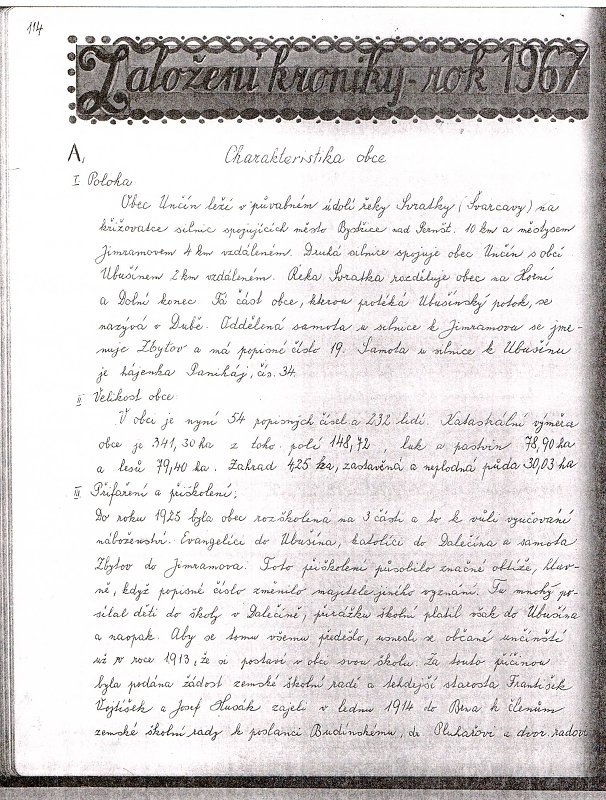 114
Založení kroniky - rok 1967
A, Charakteristika obce
I. Poloha
Obec Unčín leží v půvabném údolí řeky Svratky (Švarcavy) na
křižovatce silnic spojujících město Bystřice nad Pernšt. 10 km a městysem
Jimramovem 4 km vzdáleném. Druhá silnice spojuje obec Unčín s obcí
Ubušínem 2 km vzdáleném. Řeka Svratka rozděluje obec na Horní
a Dolní konec. Tá část obce, kterou protéká Ubušínský potok, se
nazývá v Dubě. Oddělená samota u silnice k Jimramovu se jme-
nuje Zbytov a má popisné číslo 19. Samota u silnice k Ubušínu
je hájenka Paniháj, čís. 34.
II Velikost obce
V obci je nyní 54 popisných čísel a 232 lidí. Katastrální výměra
obce je 341,30 ha z toho polí 148,72, luk a pastvin 78,90 ha
a lesů 79,40 ha. Zahrad 4,25 ha, zastavěná a neplodná půda 30,03 ha
III. Přifaření a přiškolení.
Do roku 1925 byla obec rozškolená na 3 části a to k vůli vyučování
náboženství. Evangelíci do Ubušína, katolíci do Dalečína a samota
Zbytov do Jimramova. Toto přiškolení působilo značné obtíže, hlav-
ně, když popisné číslo změnilo majitele jiného vyznání. Tu mnohý po-
sílal děti do školy v Dalečíně, přirážku školní platil však do Ubušína
a naopak. Aby se tomu všemu předešlo, usnesli se občané unčínští
už v roce 1913, že si postaví v obci svou školu. Za touto příčinou
byla podána žádost zemské školní radě a tehdejší starosta František
Vojtíšek a Josef Husák zajeli v lednu 1914 do Brna k členům
zemské školní rady k poslanci Budínskému, dr. Pluhařovi a dvor. radovi